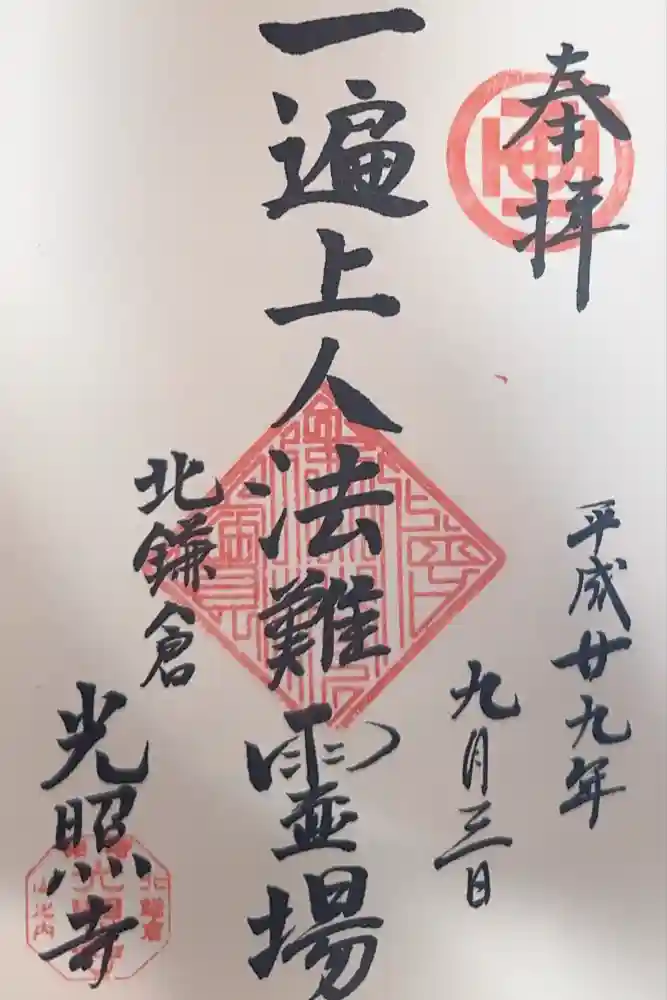 奉拝
平成廿九年
九月三日
一遍上人法難霊場
北鎌倉
光照寺
北鎌倉
山之内